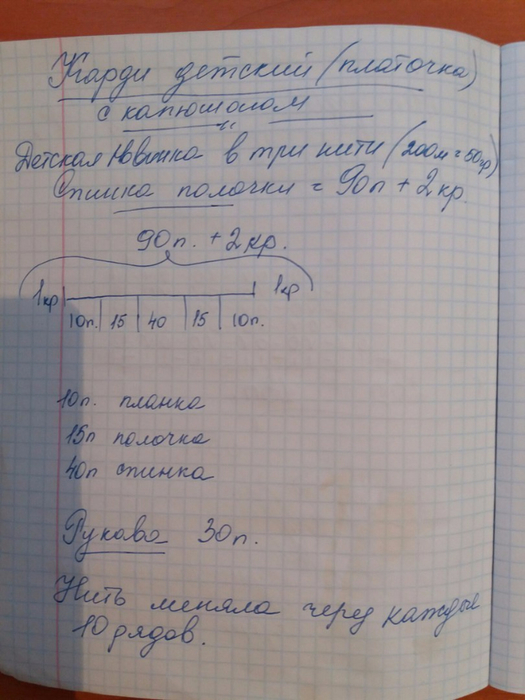 Карди детский (платочка)
с капюшоном
Детская Новинка в три нити (200м = 50гр)
Спинка полочки = 90п + 2кр.
90п. + 2кр.
1кр 1кр
10п. 15 40 15 10п.
10п. планка
15п полочка
40п спинка
Рукава 30п.
Нить меняла через каждые
10 рядов.